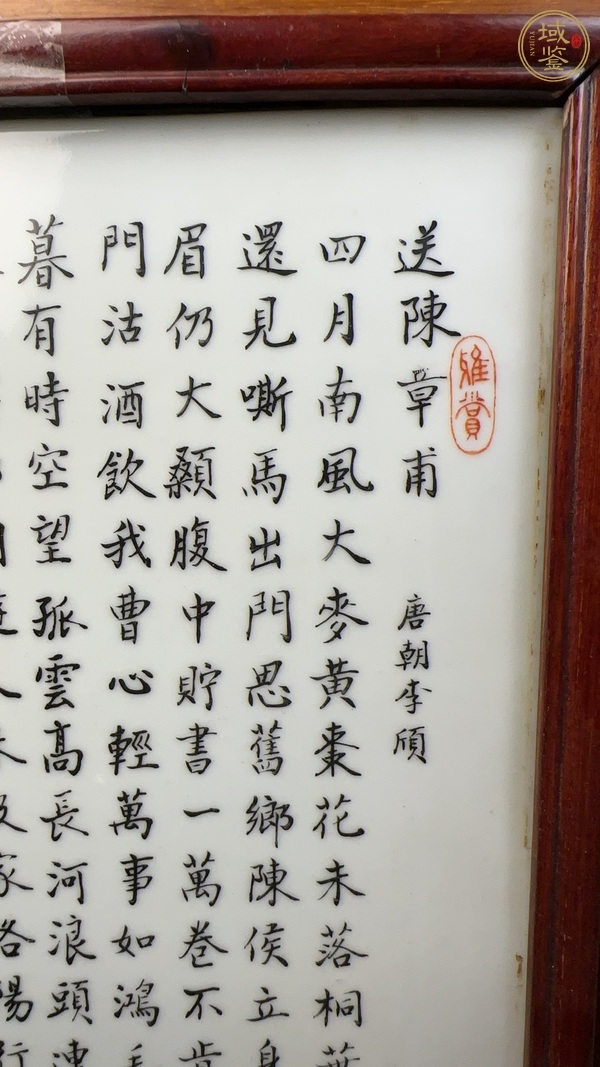 域鉴
YUJIAN
送陳章甫 唐朝李頎
雅賞
四月南風大麥黃棗花未落桐葉
還見嘶馬出門思舊鄉陳侯立身
眉仍大顙腹中貯書一萬卷不肯
門沽酒飲我曹心輕萬事如鴻毛
暮有時空望孤雲高長河浪頭連
家洛陽行